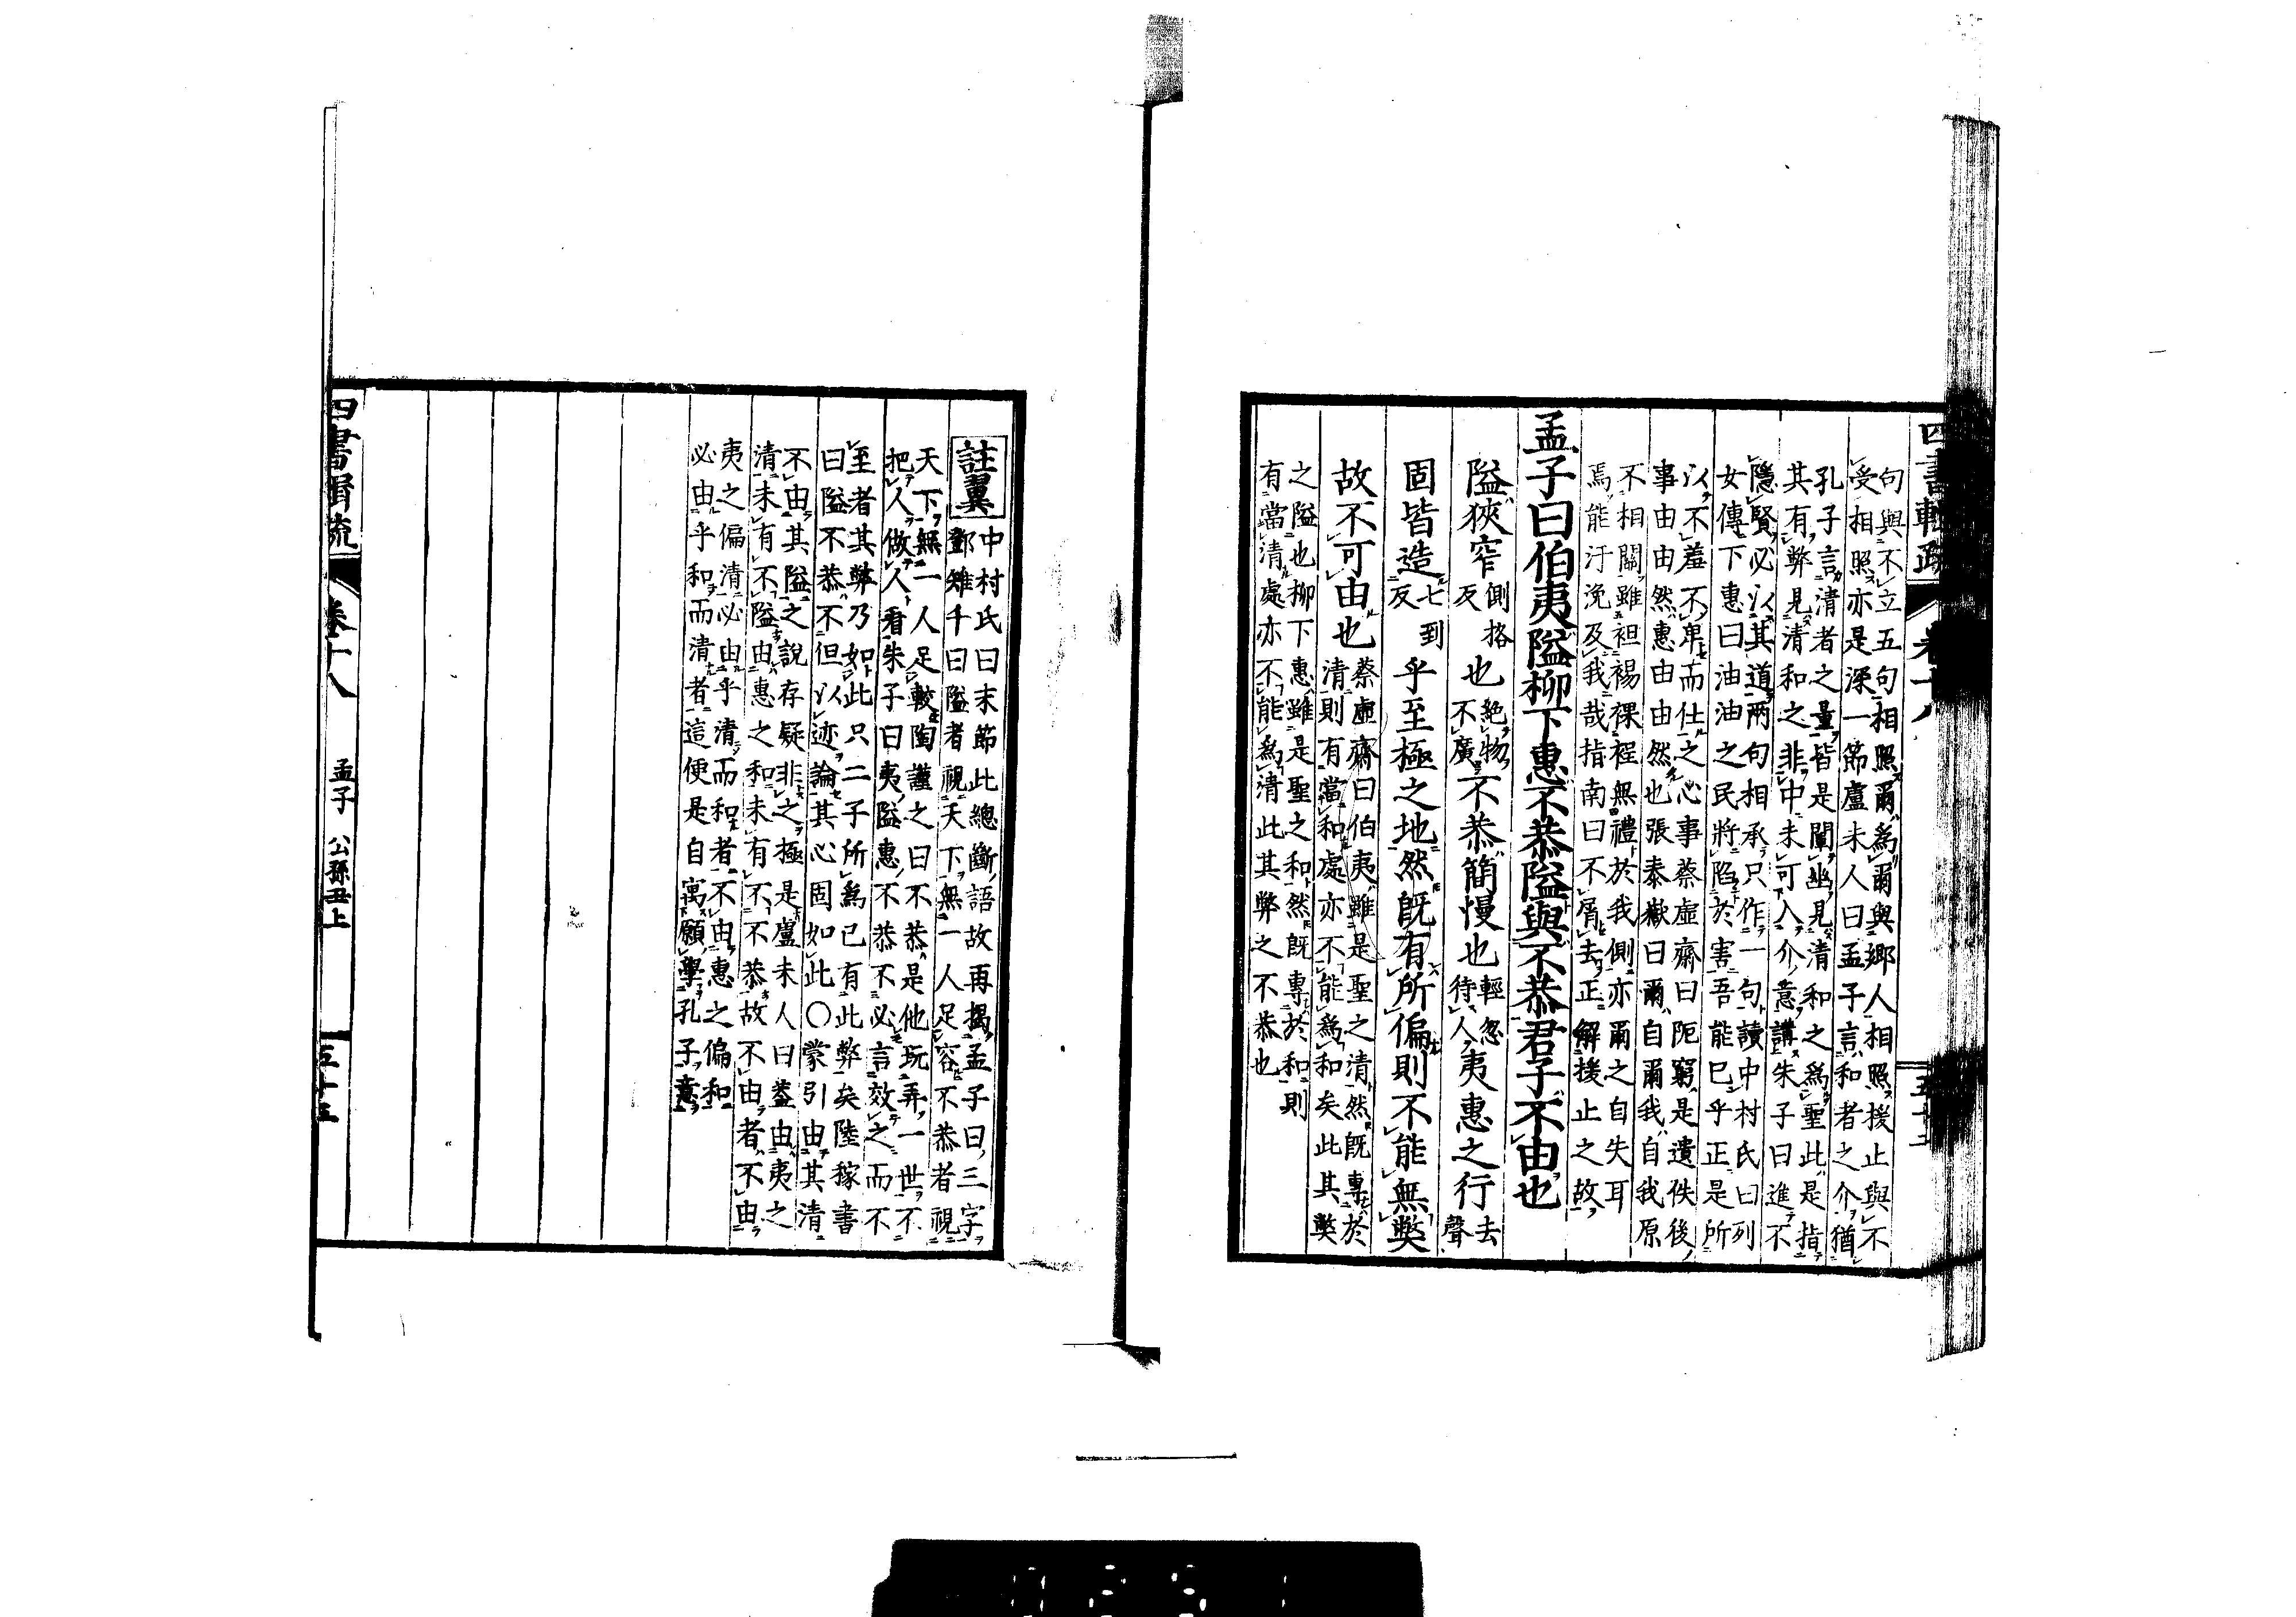 四書輯疏
卷十八
五十二
句與不立五句相照爾爲爾與鄉人相照援止與不
受相照亦是深一節盧未人曰孟子言和者之介猶
孔子言清者之量皆是闡幽見清和之爲聖此是指
其有弊見清和之非中未可入介意講朱子曰進不
隱賢必以其道兩句相承只作一句讀中村氏曰列
女傳下惠曰油油之民將陷於害吾能已乎正是所
以不羞不卑而仕之心事蔡虛齋曰阨窮是遺佚後
事由由然惠由由然也張泰嶽曰爾自爾我自我原
不相關雖袒裼裸裎無禮於我側亦爾之自失耳
焉能汙浼及我哉指南曰不屑去正解援止之故
孟子曰伯夷隘柳下惠不恭隘與不恭君子不由也
隘狹窄
側格
反
也
絶物
不廣
不恭簡慢也
輕忽
待人
夷惠之行
去
聲
固皆造
七到
反
乎至極之地然既有所偏則不能無獘
故不可由也
蔡虛齋曰伯夷雖是聖之清然既專於
清則有當和處亦不能爲和矣此其獘
之隘也柳下惠雖是聖之和然既專於和則
有當清處亦不能爲清此其弊之不恭也
註翼
中村氏曰末節此總斷語故再揭孟子曰三字
鄧雉千曰隘者視天下無一人足容不恭者視
天下無一人足較陶謹之曰不恭是他玩弄一世不
把人做人看朱子曰夷隘惠不恭不必言效之而不
至者其弊乃如此只二子所爲已有此弊矣陸稼書
曰隘不恭不但以迹論其心固如此○蒙引由其清
不由其隘之說存疑非之極是盧未人曰葢由夷之
清未有不隘由惠之和未有不不恭故不由者不由
夷之偏清必由乎清而和者不由惠之偏和
必由乎和而清者這便是自寓願學孔子意
四書輯疏
卷十八
孟子 公孫丑上
五十三